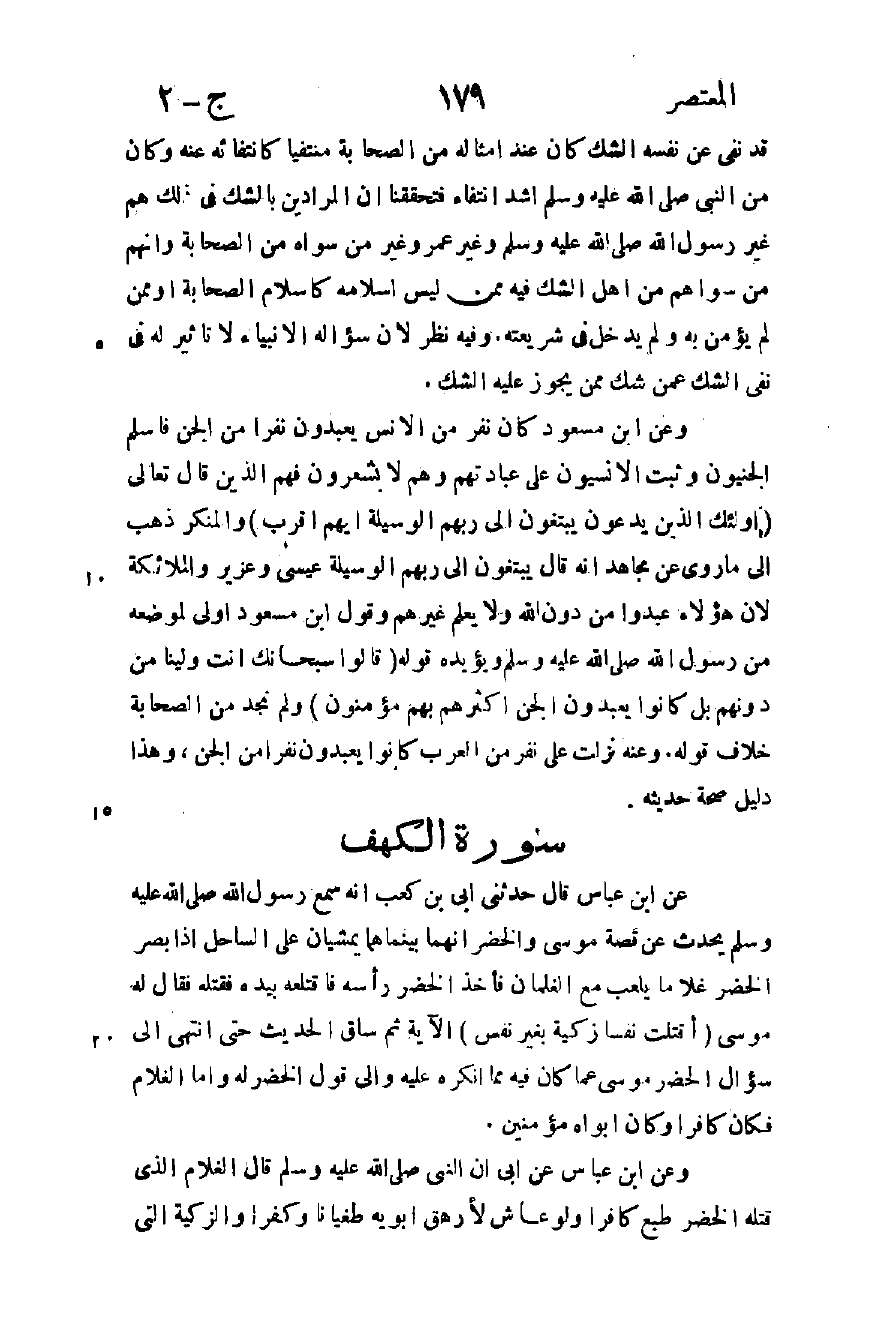 المعتصر ١٧٩ ج - ٢
قد نفى عن نفسه الشك كان عند امثاله من الصحابة منتفيا كانتفائه عنه وكان
من النبى صلى الله عليه وسلم اشد انتفاء فتحققنا ان المرادين بالشك فى ذلك هم
غير رسول الله صلى الله عليه وسلم وغير عمر وغير من سواه من الصحابة وانهم
من سواهم من اهل الشك فيه ممن ليس اسلامه كاسلام الصحابة او ممن
لم يؤمن به ولم يدخل فى شريعته. وفيه نظر لان سؤاله الانبياء لا تاثير له فى ٥
نفى الشك عمن شك ممن يجوز عليه الشك .
وعن ابن مسعود كان نفر من الانس يعبدون نفرا من الجن فاسلم
الجنيون وثبت الانسيون على عبادتهم وهم لا يشعرون فهم الذين قال تعالى
( اولئك الذين يدعون يبتغون الى ربهم الوسيلة ايهم اقرب ) والمنكر ذهب
الى ماروى عن مجاهد انه قال يبتغون الى ربهم الوسيلة عيسى وعزير والملائكة ١٠
لان هؤلاء عبدوا من دون الله ولا يعلم غيرهم وقول ابن مسعود اولى لموضعه
من رسول الله صلى الله عليه وسلم ويؤيده قوله ( قالوا سبحانك انت ولينا من
دونهم بل كانوا يعبدون الجن اكثرهم بهم مؤمنون ) ولم نجد من الصحابة
خلاف قوله. وعنه نزلت على نفر من العرب كانوا يعبدون نفرا من الجن ، وهذا
دليل صحة حديثه . ١٥
سورة الكهف
عن ابن عباس قال حدثنى ابى بن كعب انه سمع رسول الله صلى الله عليه
وسلم يحدث عن قصة موسى والخضر انهما بينماهما يمشيان على الساحل اذا بصر
الخضر غلاما يلعب مع الغلمان فأخذ الخضر رأسه فاقتلعه بيده فقتله فقال له
موسى ( أقتلت نفسا زكية بغير نفس ) الآية ثم ساق الحديث حتى انتهى الى ٢٠
سؤال الخضر موسى عما كان فيه مما انكره عليه والى قول الخضر له واما الغلام
فكان كافرا وكان ابواه مؤمنين .
وعن ابن عباس عن ابى ان النبى صلى الله عليه وسلم قال الغلام الذى
قتله الخضر طبع كافرا ولو عاش لأرهق ابويه طغيانا وكفرا والزكية التى